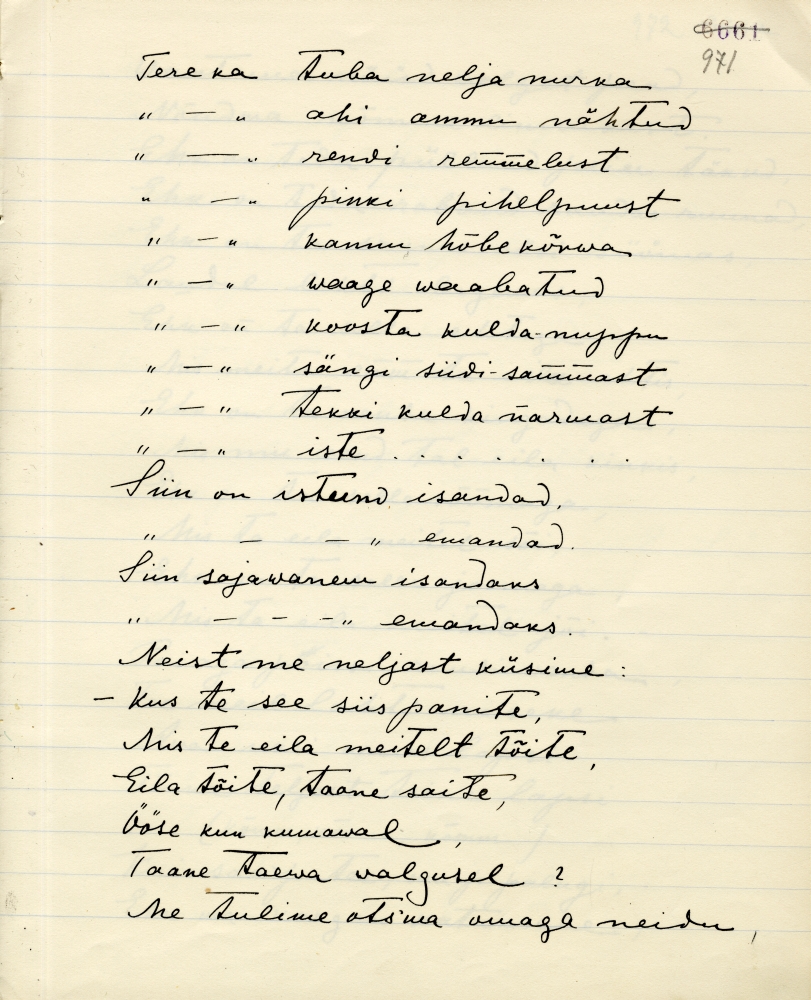 6661
971
Tere ka tuba nelja nurka
" — " ahi ammu nähtud
" — " rendi rem̅melust
" — " pinki pihelpuust
" — " kannu hõbekõrwa
" — " waage waabatud
" — " koosta kulda-nuppu
" — " sängi siidi-sam̅mast
" — " tekki kulda narmast
" — " iste . . . . . .
Siin on istund isandad,
" — — " emandad.
Siin sajawanem isandaks
" — — — " emandaks.
Neist me neljast küsime:
– Kus te see siis panite,
Mis te eila meitelt tõite,
Eila tõite, taane saite,
Ööse kuu kumawal,
Taane taewa walgusel?
Me tulime otsma omaga neidu,